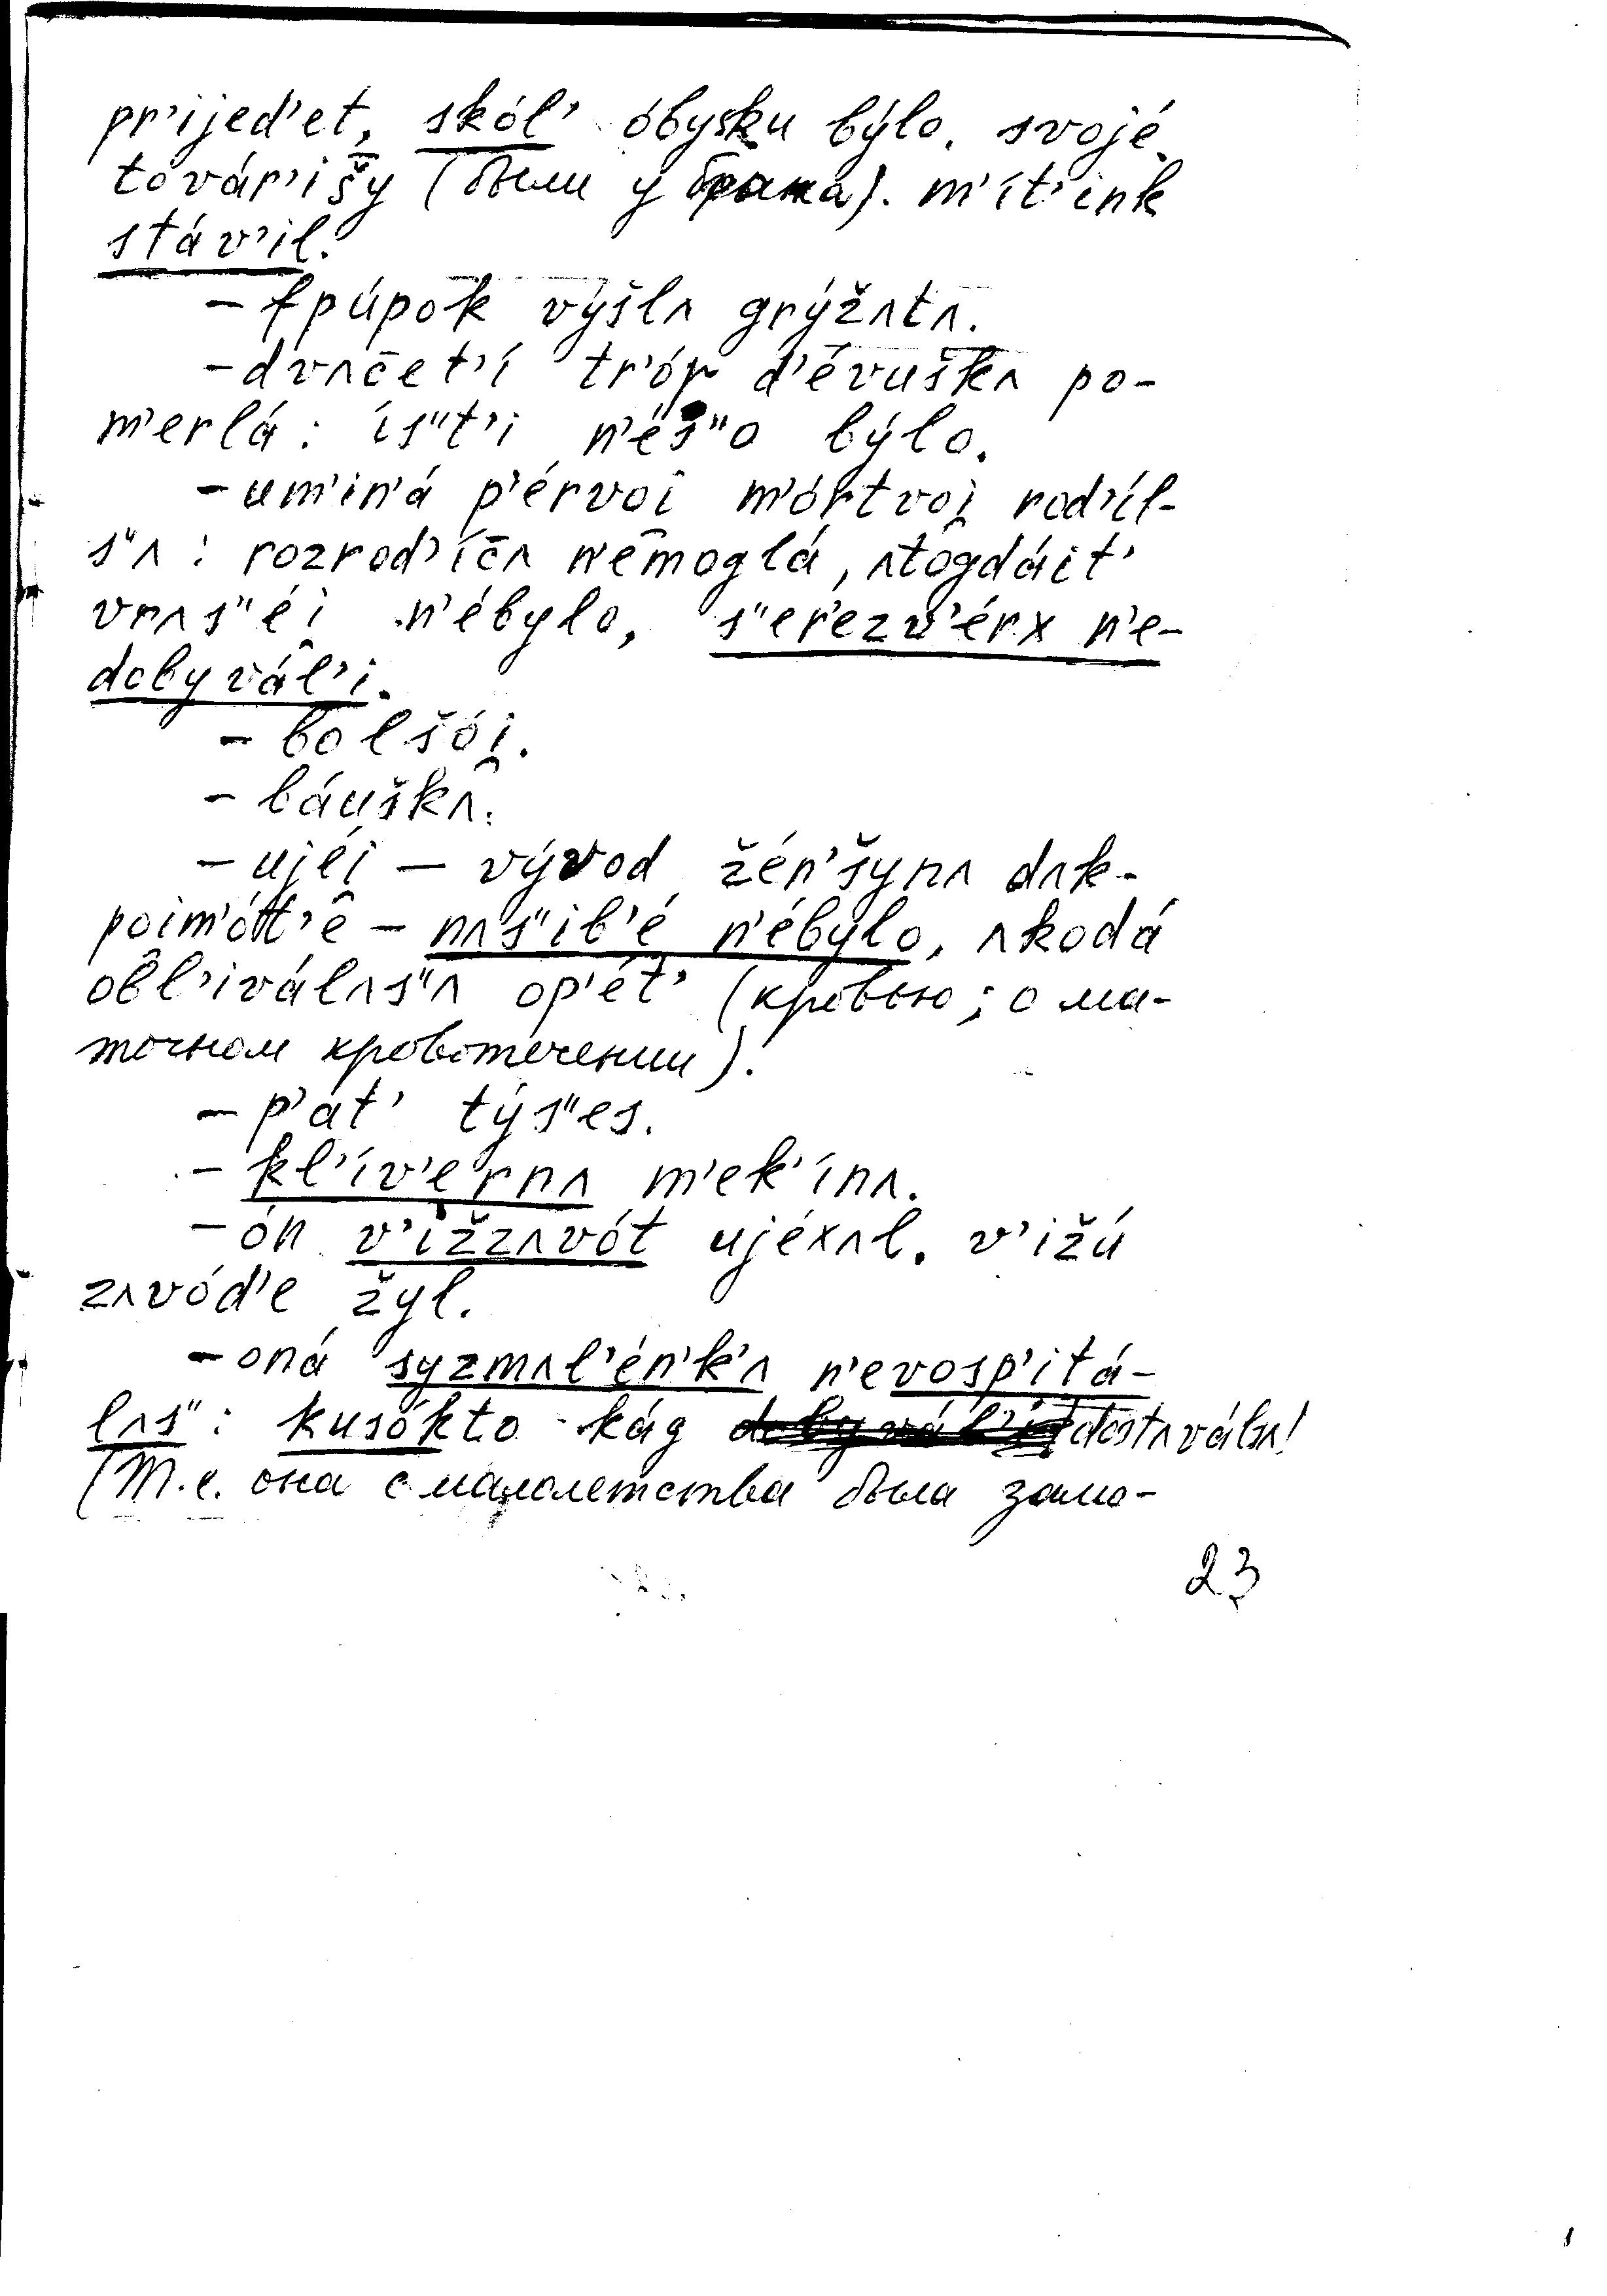 pr’ijed’et, skól’ óbysku býlo. svojé
továr’išy (были у брата). m’ít’ink
stáv’il.
– fpúpok výšlʌ grýžʌtʌ.
– dvʌčet’í tr’óx d’évuškʌ po-
m’erlá: ís"t’i n’és"o býlo.
– um’in’á p’érvoi̯ m’órtvoi̯ rod’íl-
s"ʌ: rozrod’íčʌ n’emoglá, ʌtogdáit’
vrʌs"éi̯ n’ébylo, s"er’ezv’érx n’e-
dobyvál’i.
– bolšói̯.
– báuškʌ.
– ujéi̯ – vývod žén’šynʌ dʌk-
poi̯m’ót’e – nʌs"ib’é n’ébylo, ʌkodá
obl’iválʌs"ʌ op’ét’ (кровью; о ма-
точном кровотечении).
– p’át’ týs"es.
– kl’ív’ernʌ m’ek’ínʌ.
– ón v’ižzʌvót ujéxʌl. v’ižú
zʌvód’e žyl.
– oná syzmʌl’én’k’ʌ n’evosp’itá-
lʌs": kusókto kág dostʌválsʌ!
(Т.е. она с малолетства была замо-
23